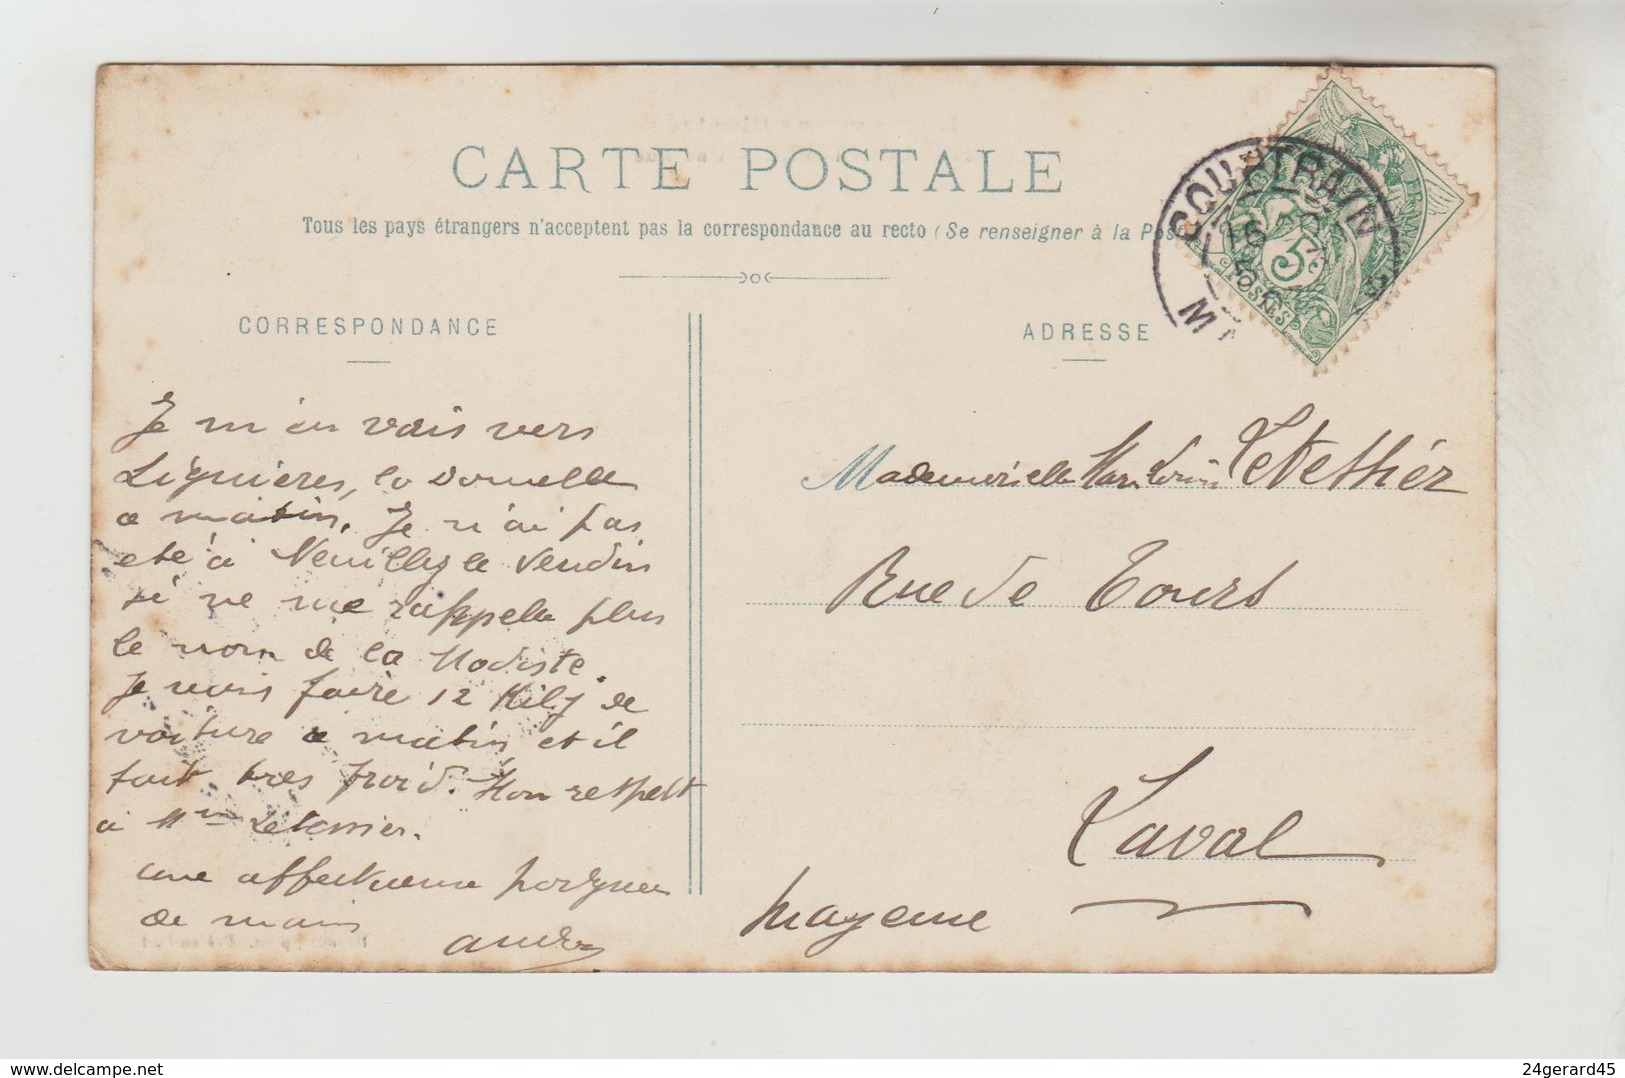 CARTE POSTALE
Tous les pays étrangers n'acceptent pas la correspondance au recto (Se renseigner à la Pos
CORRESPONDANCE
ADRESSE
COUPTRAIN
16
5
POSTES
Je m'en vais vers
Lignières, la Doucelle
ce matin. Je n'ai pas
été à Neuilly le Vendin
je ne me rappelle plus
le nom de la Modiste.
Je vais faire 12 Kilg de
voiture ce matin et il
fait très froid. Mon respect
à Mme
une affectueuse poignée
de main
André
Mademoiselle Marie Louise Letessier
Rue de Tours
Laval
Mayenne
Delcampe.net
24gerard45